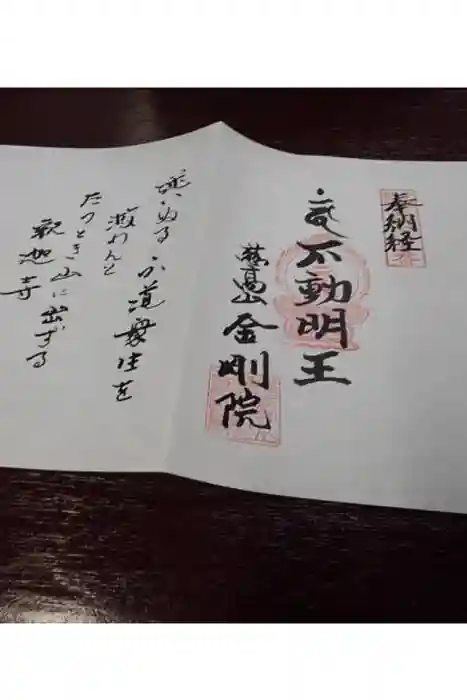 奉納経
不動明王
金剛院
迷いぬる六道衆生を
救わんと
たつとき山に出ずる
釈迦寺